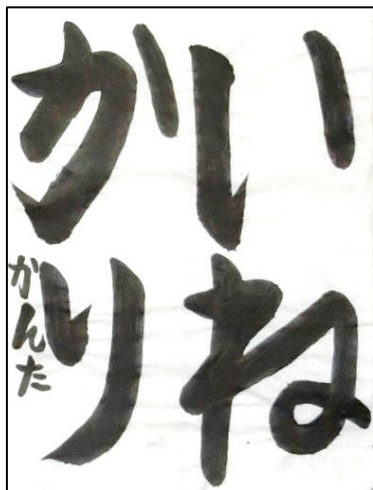 いね
かり
かんた